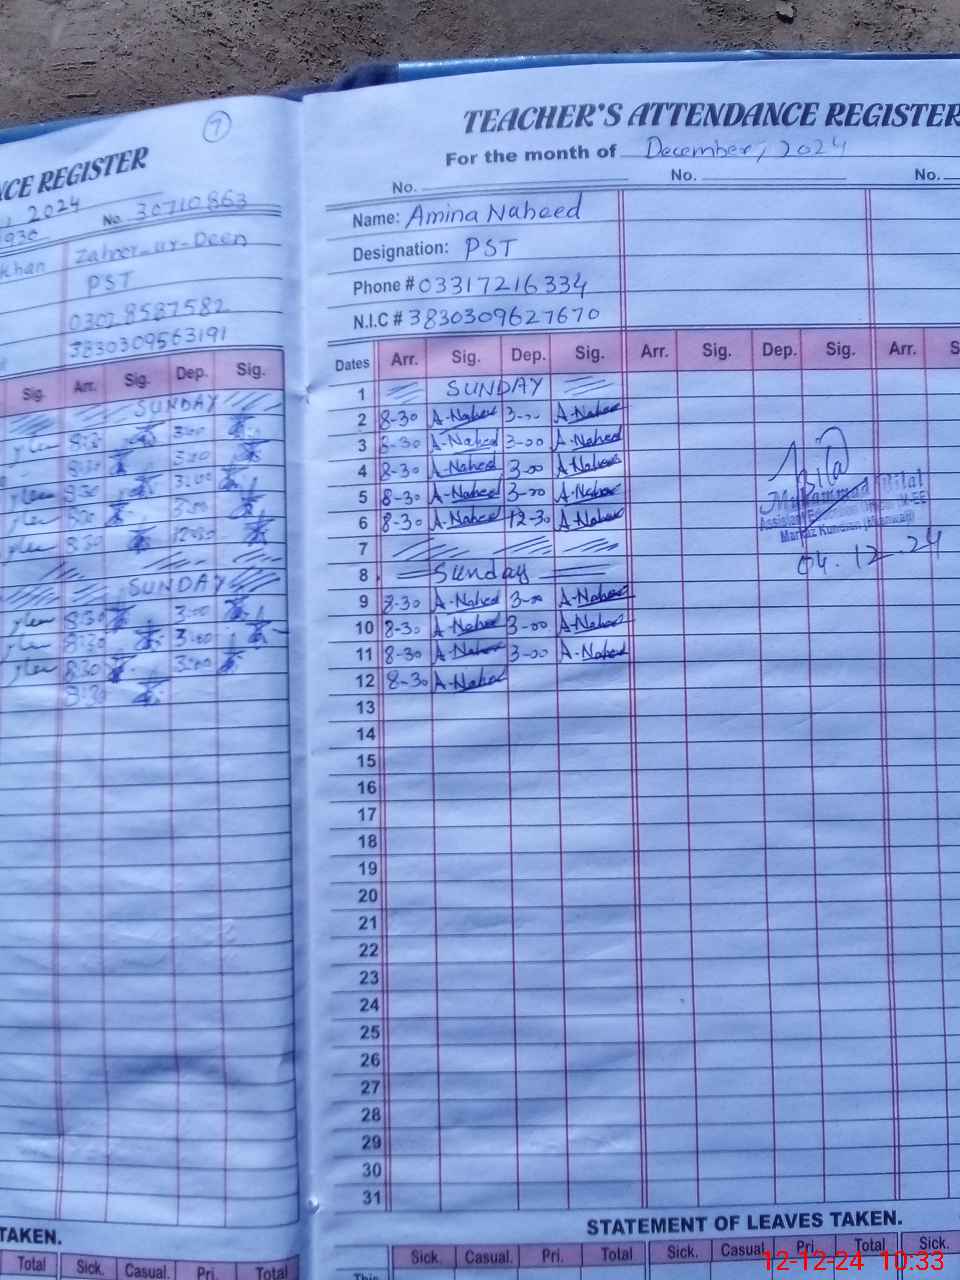 7
CE REGISTER
2024
No. 30710863
1930
Khan Zaheer-ur-Deen
PST
03028587582
3830309563191
Sig. Arr. Sig. Dep. Sig.
SUNDAY
8:30 3:00
8:30 3:00
8:30 3:00
3:00
8:30 12:30
SUNDAY
8:30 3:00
8:30 3:00
8:30 3:00
8:30
TAKEN.
Total Sick. Casual. Pri. Total
TEACHER'S ATTENDANCE REGISTER
For the month of December, 2024
No. No. No.
Name: Amina Naheed
Designation: PST
Phone # 03317216334
N.I.C # 3830309627670
Dates Arr. Sig. Dep. Sig. Arr. Sig. Dep. Sig. Arr. S
1 SUNDAY
2 8-30 A-Naheed 3-00 A-Naheed
3 8-30 A-Naheed 3-00 A-Naheed
4 8-30 A-Naheed 3-00 A-Naheed
5 8-30 A-Naheed 3-00 A-Naheed
6 8-30 A-Naheed 12-30 A-Naheed
7
8 Sunday
9 8-30 A-Naheed 3-00 A-Naheed
10 8-30 A-Naheed 3-00 A-Naheed
11 8-30 A-Naheed 3-00 A-Naheed
12 8-30 A-Naheed
13
14
15
16
17
18
19
20
21
22
23
24
25
26
27
28
29
30
31
Muhammad Bilal
Assistant Education Officer (M-EE)
Markaz (Mianwali)
04.12.24
STATEMENT OF LEAVES TAKEN.
Sick. Casual. Pri. Total Sick. Casual. Pri. Total Sick.
This
12-12-24 10:33